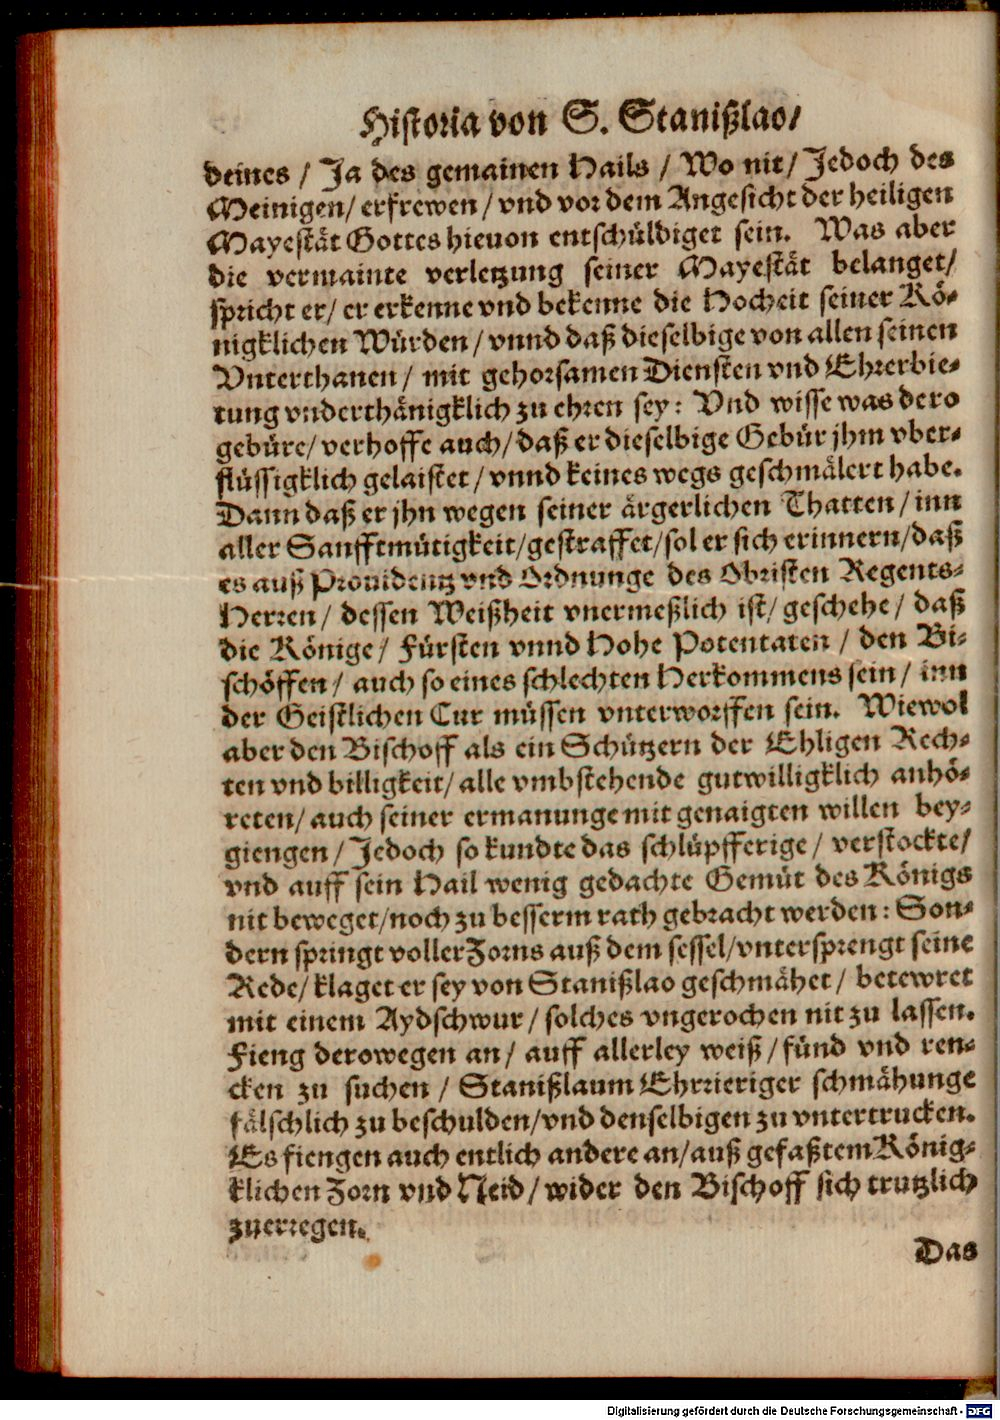 Historia von S. Stanißlao/
deines / Ja des gemainen Hails / Wo nit/ Jedoch des
Meinigen/ erfrewen / vnd vor dem Angesicht der heiligen
Mayestät Gottes hieuon entschüldiget sein. Was aber
die vermainte verletzung seiner Mayestät belanget/
spricht er/ er erkenne vnd bekenne die Hocheit seiner Kö-
nigklichen Würden / vnnd daß dieselbige von allen seinen
Vnterthanen / mit gehorsamen Diensten vnd Ehrerbie-
tung vnderthänigklich zu ehren sey: Vnd wisse was dero
gebüre/ verhoffe auch/ daß er dieselbige Gebür jhm vber-
flüssigklich gelaistet / vnnd keines wegs geschmälert habe.
Dann daß er jhn wegen seiner ärgerlichen Thatten / inn
aller Sanfftmütigkeit/gestraffet/sol er sich erinnern/daß
es auß Prouidentz vnd Ordnunge des Obristen Regents-
Herren / dessen Weißheit vnermeßlich ist/ geschehe / daß
die Könige / Fürsten vnnd Hohe Potentaten / den Bi-
schöffen / auch so eines schlechten Herkommens sein / inn
der Geistlichen Cur müssen vnterworffen sein. Wiewol
aber den Bischoff als ein Schützern der Ehligen Rech-
ten vnd billigkeit/ alle vmbstehende gutwilligklich anhö-
reten/ auch seiner ermanunge mit genaigten willen bey-
giengen / Jedoch so kundte das schlüpfferige / verstockte/
vnd auff sein Hail wenig gedachte Gemüt des Königs
nit beweget/noch zu besserm rath gebracht werden: Son-
dern springt voller Zorns auß dem sessel/vntersprengt seine
Rede/ klaget er sey von Stanißlao geschmähet / betewret
mit einem Aydschwur / solches vngerochen nit zu lassen.
Fieng derowegen an/ auff allerley weiß / fünd vnd ren-
cken zu suchen / Stanißlaum Ehrrieriger schmähunge
fälschlich zu beschulden/vnd denselbigen zu vntertrucken.
Es fiengen auch entlich andere an/auß gefaßtem König-
klichen Zorn vnd Neid / wider den Bischoff sich trutzlich
zuerregen.
Das
Digitalisierung gefördert durch die Deutsche Forschungsgemeinschaft - DFG